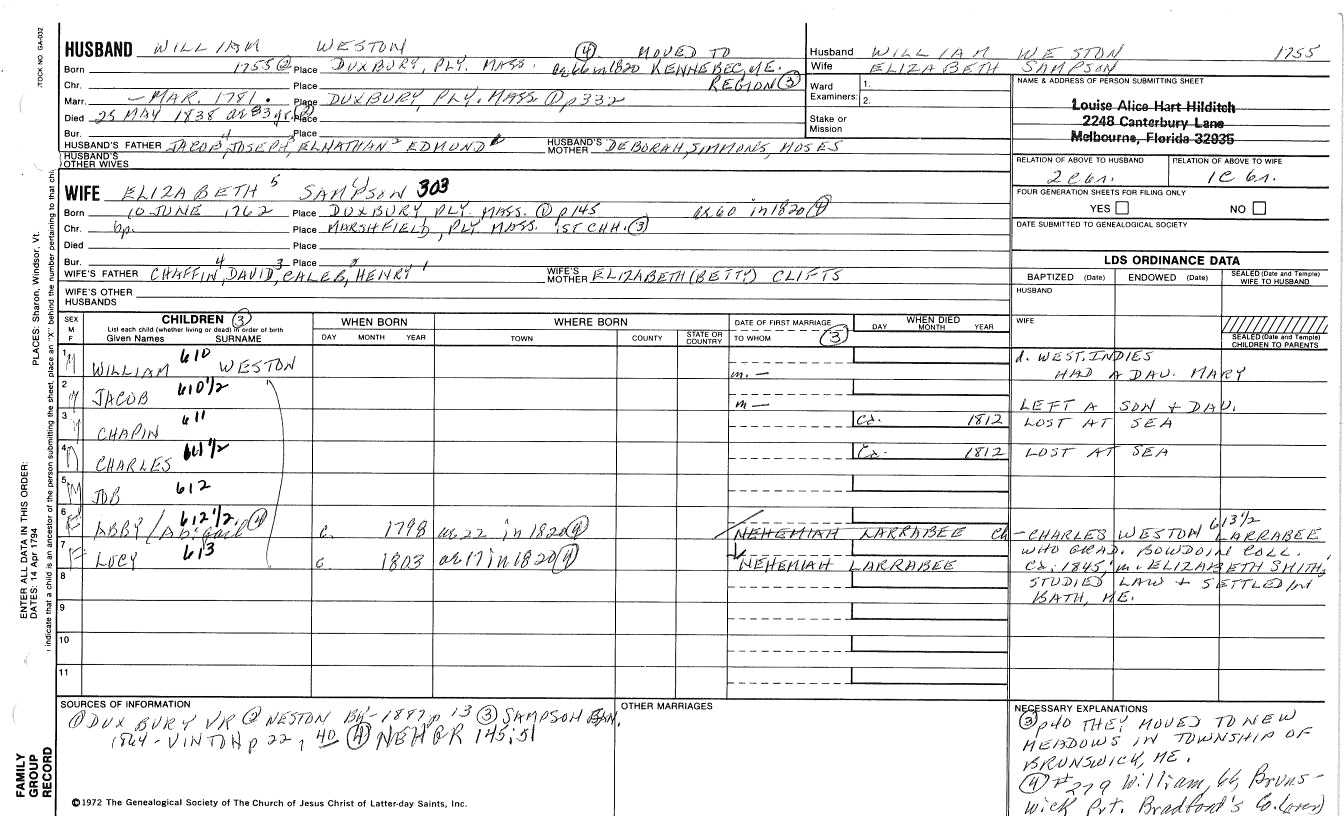 STOCK NO. GA-032
HUSBAND WILLIAM WESTON ④ MOVED TO
Born 1755② Place DUXBURY, PLY. MASS. ae 66 in 1820 KENNEBEC, ME.
Chr. Place REGION③
Marr. — MAR. 1781. Place DUXBURY, PLY. MASS. ① p332
Died 25 MAY 1838 ae 83 yr. Place
Bur. Place
HUSBAND'S FATHER JACOB 4, JOSEPH, ELNATHAN 2 EDMUND
HUSBAND'S MOTHER DEBORAH, SIMMONS, MOSES
HUSBAND'S OTHER WIVES
Husband WILLIAM WESTON 1755
Wife ELIZABETH SAMPSON
Ward Examiners: 1.
2.
Stake or Mission
NAME & ADDRESS OF PERSON SUBMITTING SHEET
Louise Alice Hart Hilditch
2248 Canterbury Lane
Melbourne, Florida 32935
RELATION OF ABOVE TO HUSBAND
2C 6r.
RELATION OF ABOVE TO WIFE
1C 6r.
FOUR GENERATION SHEETS FOR FILING ONLY
YES NO
DATE SUBMITTED TO GENEALOGICAL SOCIETY
WIFE ELIZABETH 5 SAMPSON 303
Born 10 JUNE 1762 Place DUXBURY, PLY. MASS. ① p145 ae 60 in 1820④
Chr. bp. Place MARSHFIELD, PLY. MASS. 1ST CHH. ③
Died Place
Bur. Place
WIFE'S FATHER CHAFFIN 4, DAVID 3, CALEB 2, HENRY 1
WIFE'S MOTHER ELIZABETH (BETTY) CLIFTS
WIFE'S OTHER HUSBANDS
LDS ORDINANCE DATA
BAPTIZED (Date) ENDOWED (Date) SEALED (Date and Temple) WIFE TO HUSBAND
HUSBAND
WIFE
SEALED (Date and Temple) CHILDREN TO PARENTS
SEX M F
CHILDREN ③
List each child (whether living or dead) in order of birth
Given Names SURNAME
WHEN BORN
DAY MONTH YEAR
WHERE BORN
TOWN COUNTY STATE OR COUNTRY
DATE OF FIRST MARRIAGE
TO WHOM ③
WHEN DIED
DAY MONTH YEAR
1 M WILLIAM 610 WESTON m. — d. WEST. INDIES
HAD A DAU. MARY
2 M JACOB 610 1/2 m — LEFT A SON + DAU.
3 M CHAPIN 611 Ca. 1812 LOST AT SEA
4 M CHARLES 611 1/2 Ca. 1812 LOST AT SEA
5 M JOB 612
6 F ABBY / Abigail 612 1/2 ④ c. 1798 ae 22 in 1820④ NEHEMIAH LARRABEE ch — CHARLES WESTON 613 1/2 LARRABEE
WHO GRAD. BOWDOIN COLL.
7 F LUCY 613 c. 1803 ae 17 in 1820④ NEHEMIAH LARRABEE Ca. 1845, m. ELIZABETH SMITH,
8 STUDIED LAW + SETTLED IN
BATH, ME.
9
10
11
SOURCES OF INFORMATION
① DUXBURY VR ② WESTON BK-1887 p 13 ③ SAMPSON FAM.
1864 - VINTON p. 22, 40 ④ NEHGR 145:51
OTHER MARRIAGES
NECESSARY EXPLANATIONS
③ p40 THEY MOVED TO NEW
MEADOWS IN TOWNSHIP OF
BRUNSWICK, ME.
④ #279 William, 66, Bruns-
wick Pvt. Bradford's Co. (over)
©1972 The Genealogical Society of The Church of Jesus Christ of Latter-day Saints, Inc.
PLACES: Sharon, Windsor, Vt.
ENTER ALL DATA IN THIS ORDER:
DATES: 14 Apr 1794
indicate that a child is an ancestor of the person submitting the sheet, place an "X" behind the number pertaining to that chi
FAMILY GROUP RECORD